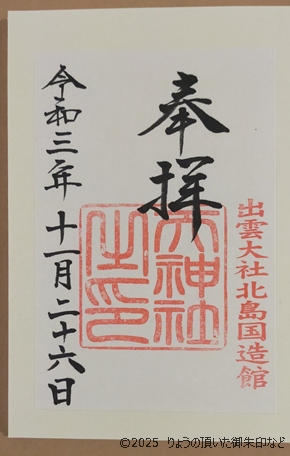 出雲大社北島国造館
奉拝
天神社
之印
令和三年十一月二十六日
©2025 りょうの頂いた御朱印など